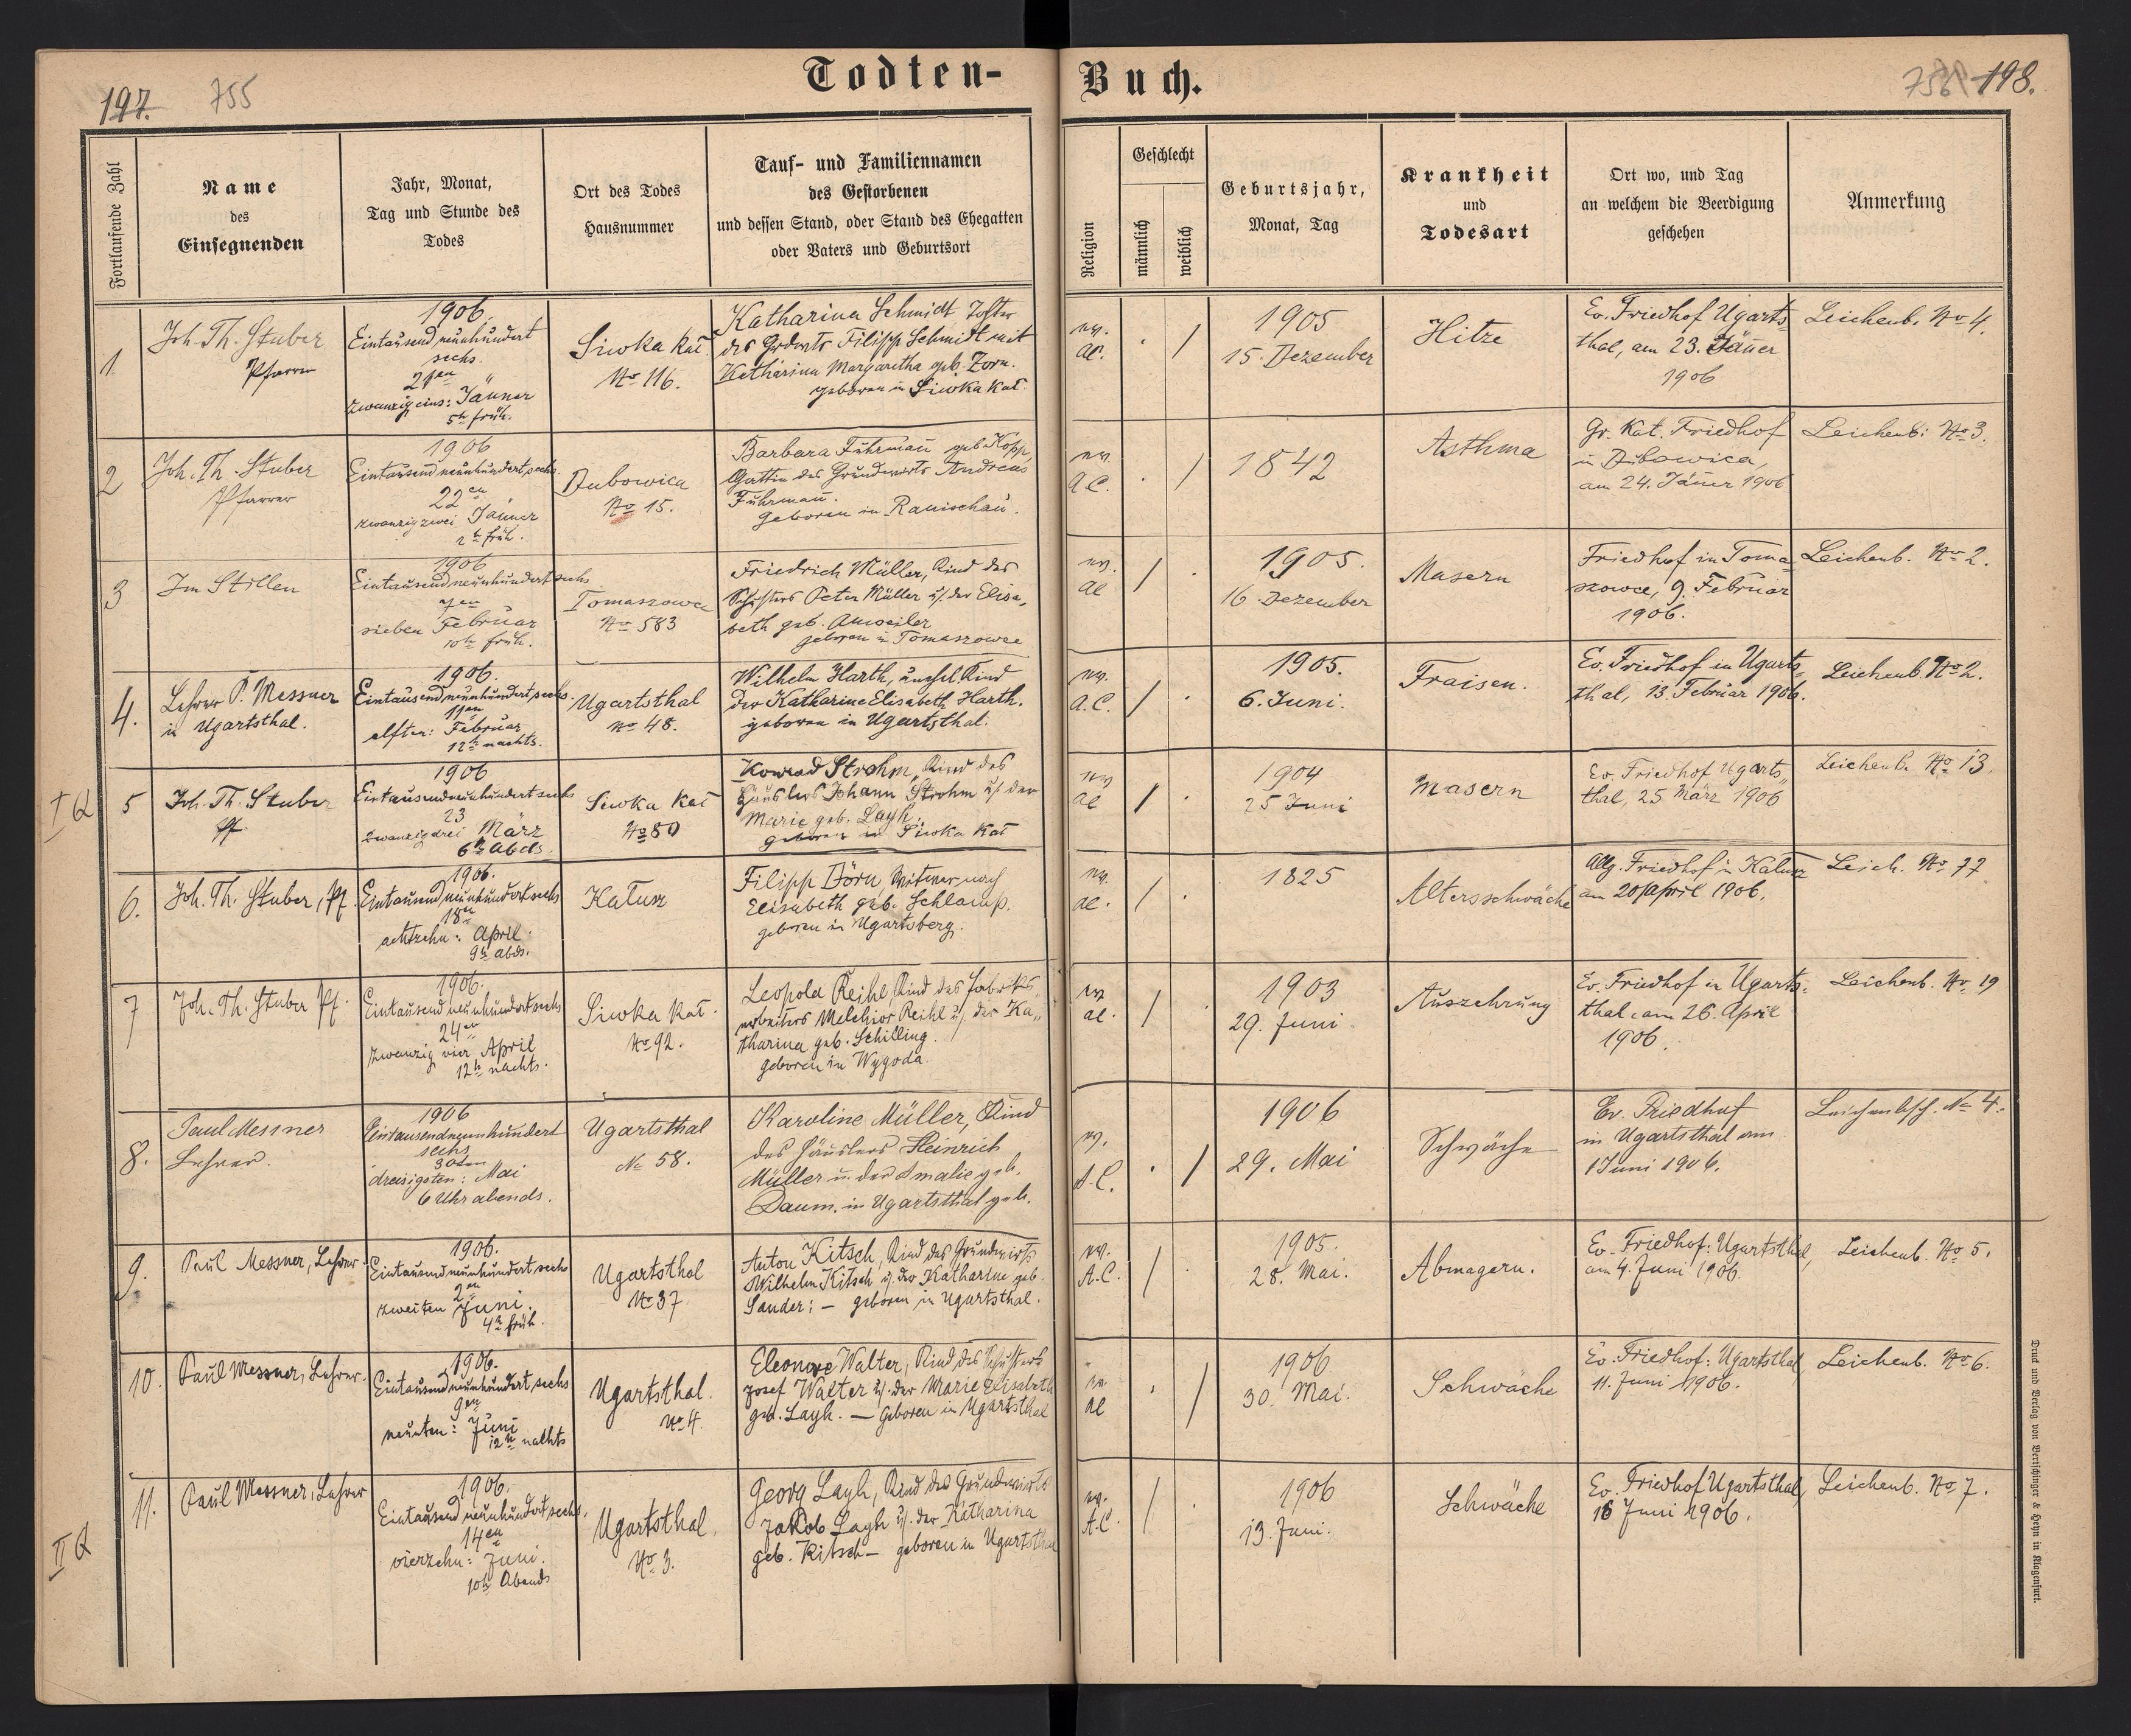 Todten-
Buch.
197.
755
198.
Fortlaufende Zahl
Name
des
Einsegnenden
Jahr, Monat,
Tag und Stunde des
Todes
Ort des Todes
Hausnummer
Tauf- und Familiennamen
des Gestorbenen
und dessen Stand, oder Stand des Ehegatten
oder Vaters und Geburtsort
Religion
Geschlecht
männlich
weiblich
Geburtsjahr,
Monat, Tag
Krankheit
und
Todesart
Ort wo, und Tag
an welchem die Beerdigung
geschehen
Anmerkung
1
Joh. Th. Stuber
Pfarrer
1906
Eintausend neunhundert
sechs.
21en
zwanzigeins: Jänner
5h früh.
Siwka Kał
No 116.
Katharina Schmidt Tochter
des Grdwrts Filipp Schmidt mit
Katharina Margaretha geb. Zorn.
geboren in Siwka Kał.
ev.
AC.
1905
15. Dezember
Hitze
Ev. Friedhof Ugarts-
thal, am 23. Jäner
1906
Leichenb. No 4.
2
Joh. Th. Stuber
Pfarrer
1906
Eintausendneunhundert, sechs.
22en
zwanzigzwei Jänner
2h früh.
Dubowica
No 15.
Barbara Fuhrmann geb Kopp,
Gattin des Grundwirts Andreas
Fuhrmann.
Geboren in Ranischau.
ev.
A.C.
1842
Asthma
Gr. Kat. Friedhof
in Dubowica,
am 24. Jäner 1906
Leichenb: No 3.
3
Im Stillen
1906
Eintausendneunhundert sechs
7en
sieben Februar
10h früh.
Tomaszowce
No 583
Friedrich Müller, Kind des
Schusters Peter Müller u. der Elisa-
beth geb. Anweiler
geboren in Tomaszowce
ev.
AC
1905.
16 Dezember
Masern
Friedhof in Toma-
szowce, 9. Februar
1906.
Leichenb. No 2.
4.
Lehrer P. Messner
in Ugartsthal.
1906.
Eintausendneunhundert, sechs.
11en
elften: Februar
12h nachts.
Ugartsthal
No 48.
Wilhelm Harth, unehel Kind
der Katharine Elisabeth Harth.
geboren in Ugartsthal.
ev.
A.C.
1905.
6. Juni.
Fraisen.
Ev. Friedhof in Ugarts-
thal, 13. Februar 1906.
Leichenb. No 2.
I Q
5
Joh. Th. Stuber
Pf.
1906
Eintausendneunhundert sechs
23
zwanzigdrei März
6h Abds.
Siwka Kał
No 80
Konrad Strohm, Kind des
Häuslers Johann Strohm u. der
Marie geb. Layh.
geboren in Siwka Kał
ev
AC
1904
25 Juni
Masern
Ev. Friedhof Ugarts-
thal, 25 März 1906
Leichenb. No 13.
6.
Joh. Th. Stuber, Pf.
1906.
Eintausend neunhundert sechs
18en
achtzehn: April.
9h abds.
Kałusz
Filipp Dörn Witwer nach
Elisabeth geb. Schlamp.
geboren in Ugartsberg.
ev.
AC.
1825
Altersschwäche
Allg. Friedhof in Kałusz
am 20 April 1906.
Leich. No 77
7
Joh. Th. Stuber Pf.
1906.
Eintausend neunhundertsechs
24en
zwanzig vier April
12h nachts.
Siwka Kał.
No 92.
Leopold Reihl, Kind des Fabriks-
arbeiters Melchior Reihl u. der Ka-
tharina geb. Schilling.
geboren in Wygoda.
ev
AC.
1903
29. Juni
Auszehrung
Ev. Friedhof in Ugarts-
thal, am 26. April
1906.
Leichenb. No 19
8.
Paul Messner
Lehrer.
1906
Eintausendneunhundert
sechs
30ten
dreisigsten: Mai
6 Uhr abends.
Ugartsthal
No 58.
Karoline Müller, Kind
des Häuslers Heinrich
Müller u. der Amalie geb.
Daum. in Ugartsthal geb.
ev.
A.C.
1906
29. Mai
Schwäche
Ev. Friedhof
in Ugartsthal am
1 Juni 1906.
Leichenbsch. No 4.
9.
Paul Messner, Lehrer
1906.
Eintausendneunhundert, sechs
2en
zweiten Juni.
4h früh.
Ugartsthal
No 37.
Anton Kitsch, Kind des Grundwirts
Wilhelm Kitsch u. der Katharine geb.
Sander: – geboren in Ugartsthal.
ev.
A.C.
1905.
28. Mai.
Abmagern.
Ev. Friedhof: Ugartsthal,
am 4. Juni 1906.
Leichenb. No 5.
10.
Paul Messner, Lehrer.
1906.
Eintausendneunhundert, sechs
9en
neunten: Juni
12h nachts
Ugartsthal.
No 4.
Eleonore Walter, Kind des Schusters
Josef Walter u. der Marie Elisabeth
geb. Layh. – Geboren in Ugartsthal
ev.
AC
1906
30. Mai.
Schwäche
Ev. Friedhof: Ugartsthal,
11. Juni 1906.
Leichenb. No 6.
II Q
11.
Paul Messner, Lehrer
1906.
Eintausend neunhundert, sechs.
14en
vierzehn: Juni.
10h Abends
Ugartsthal.
No 3.
Georg Layh, Kind des Grundwirts
Jakob Layh u. der Katharina
geb. Kitsch – geboren in Ugartsthal
ev.
A.C.
1906
13. Juni.
Schwäche
Ev. Friedhof Ugartsthal,
16 Juni 1906.
Leichenb. No 7.
Druck und Verlag von Bertschinger & Heyn in Klagenfurt.